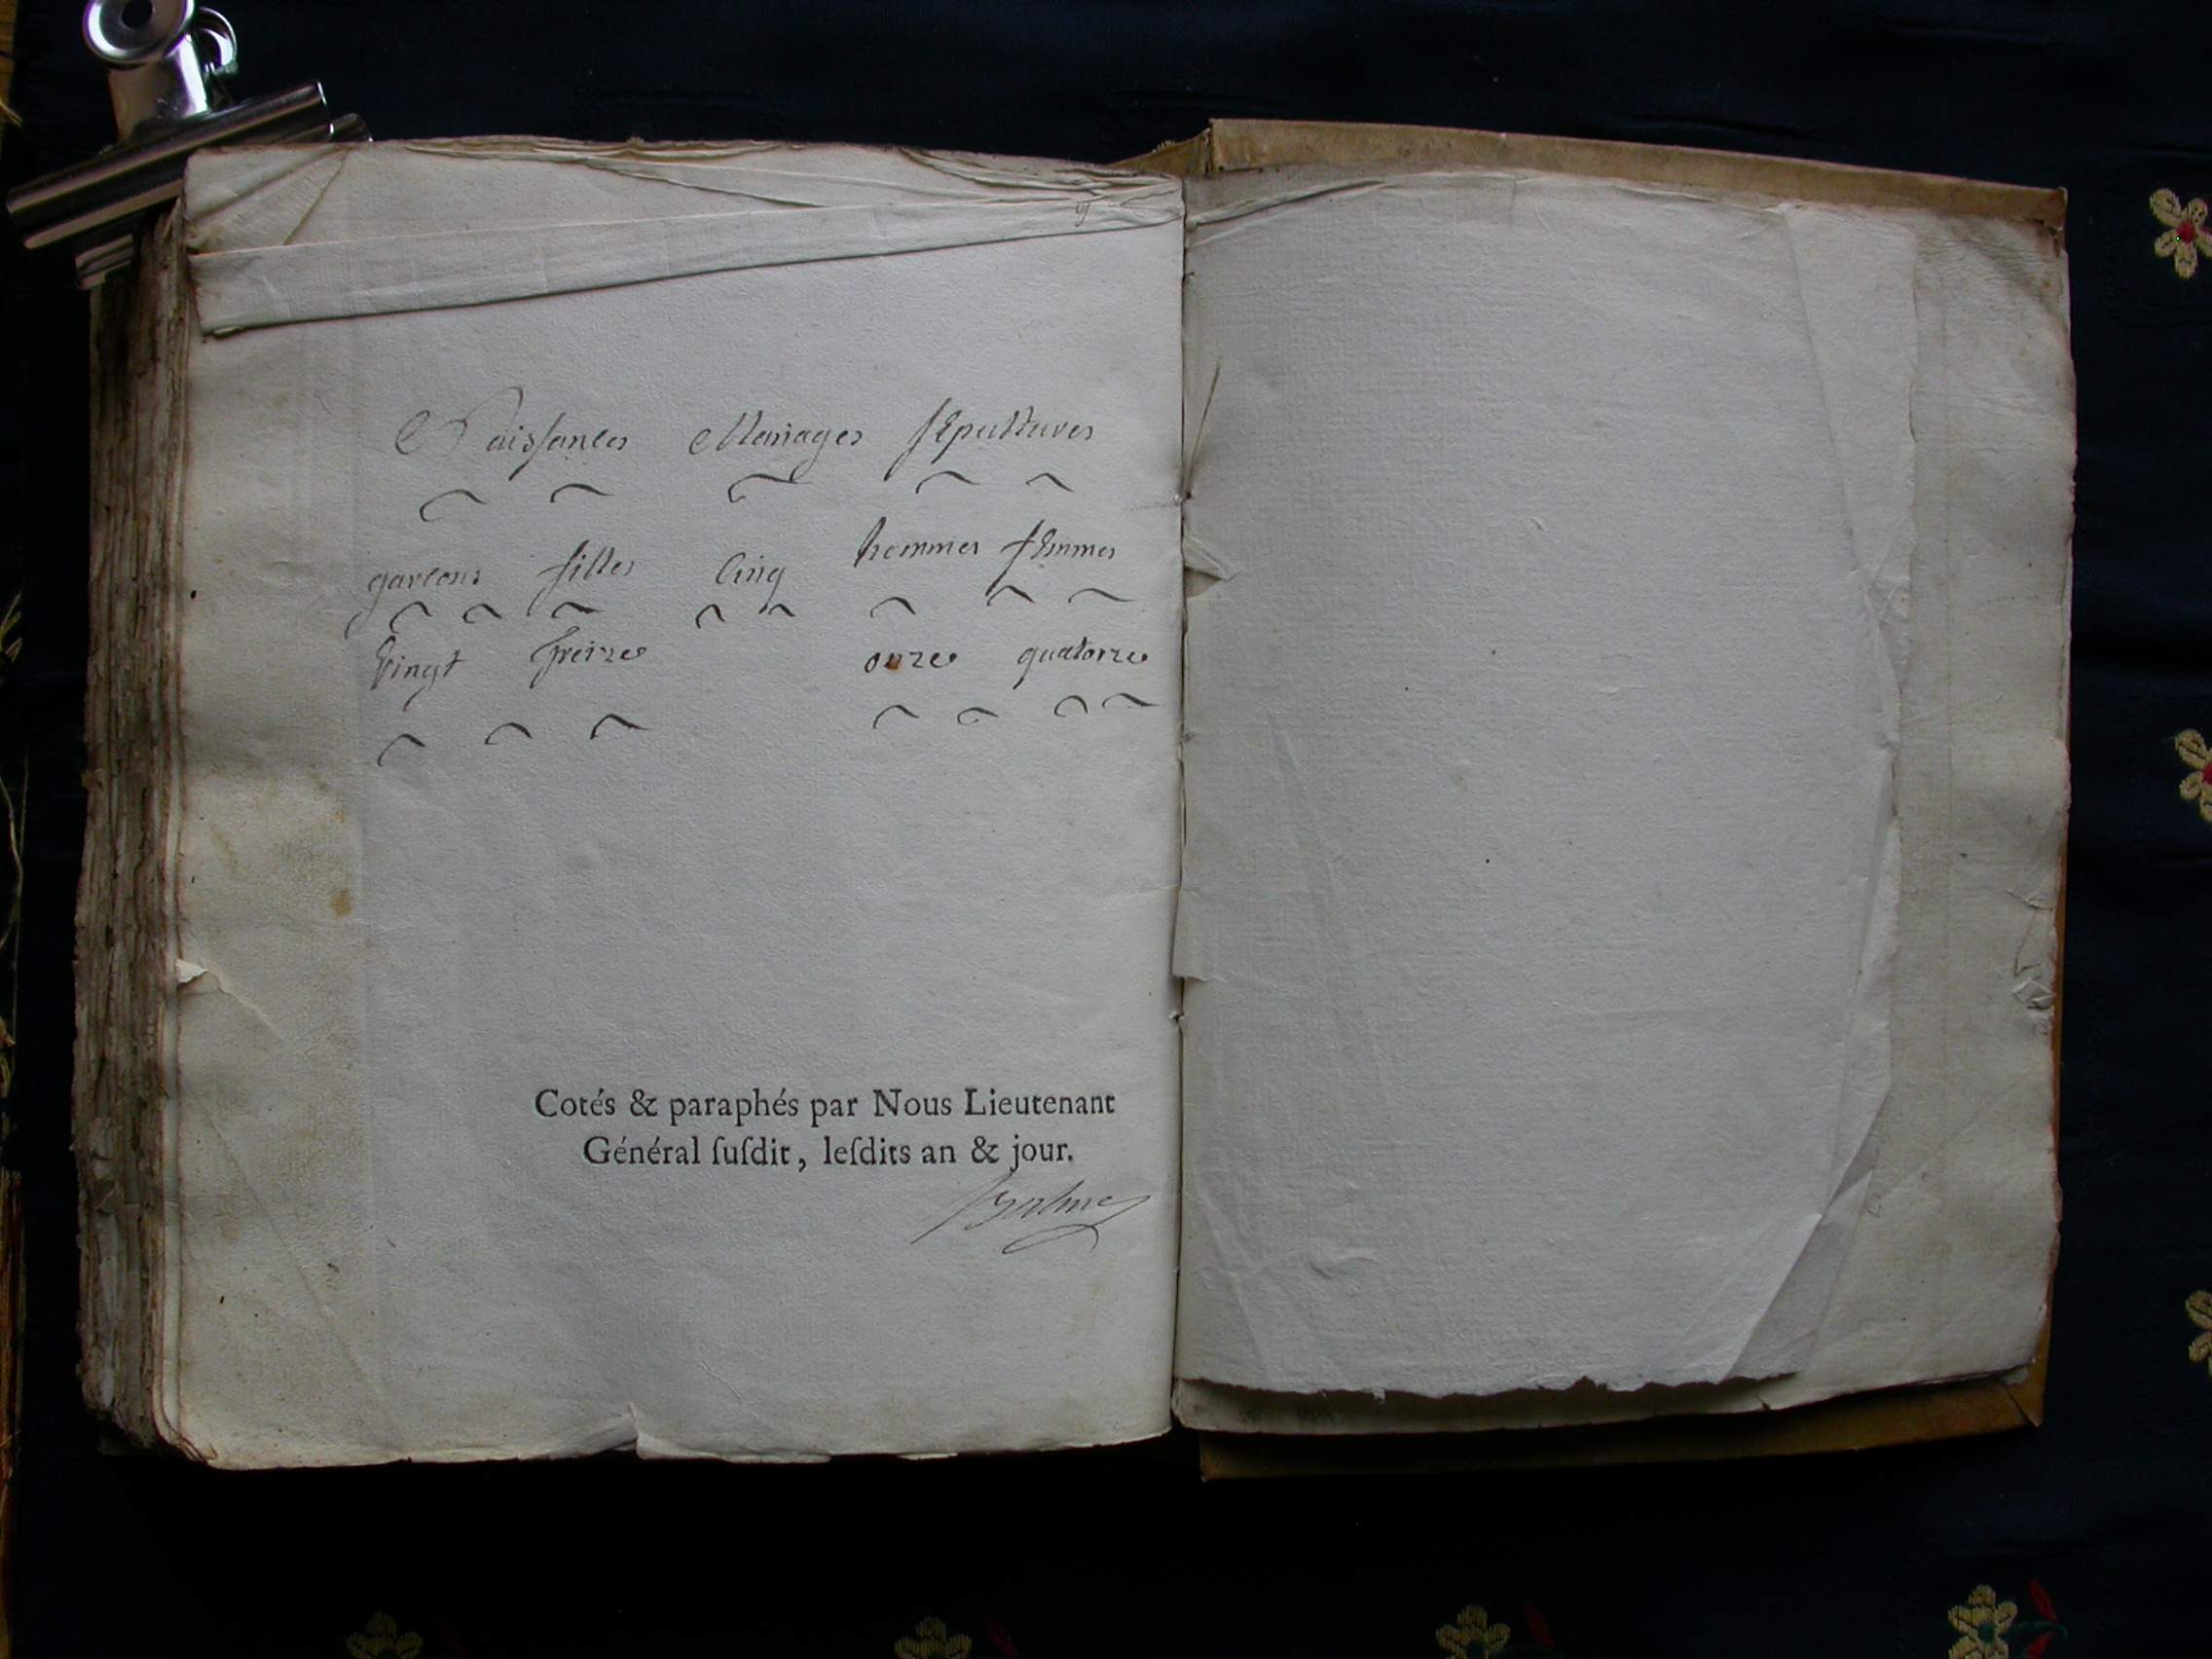 Naissances Mariages sepultures
garcons filles cinq hommes femmes
vingt treize onze quatorze
Cotés & paraphés par Nous Lieutenant
Général ſuſdit, leſdits an & jour.